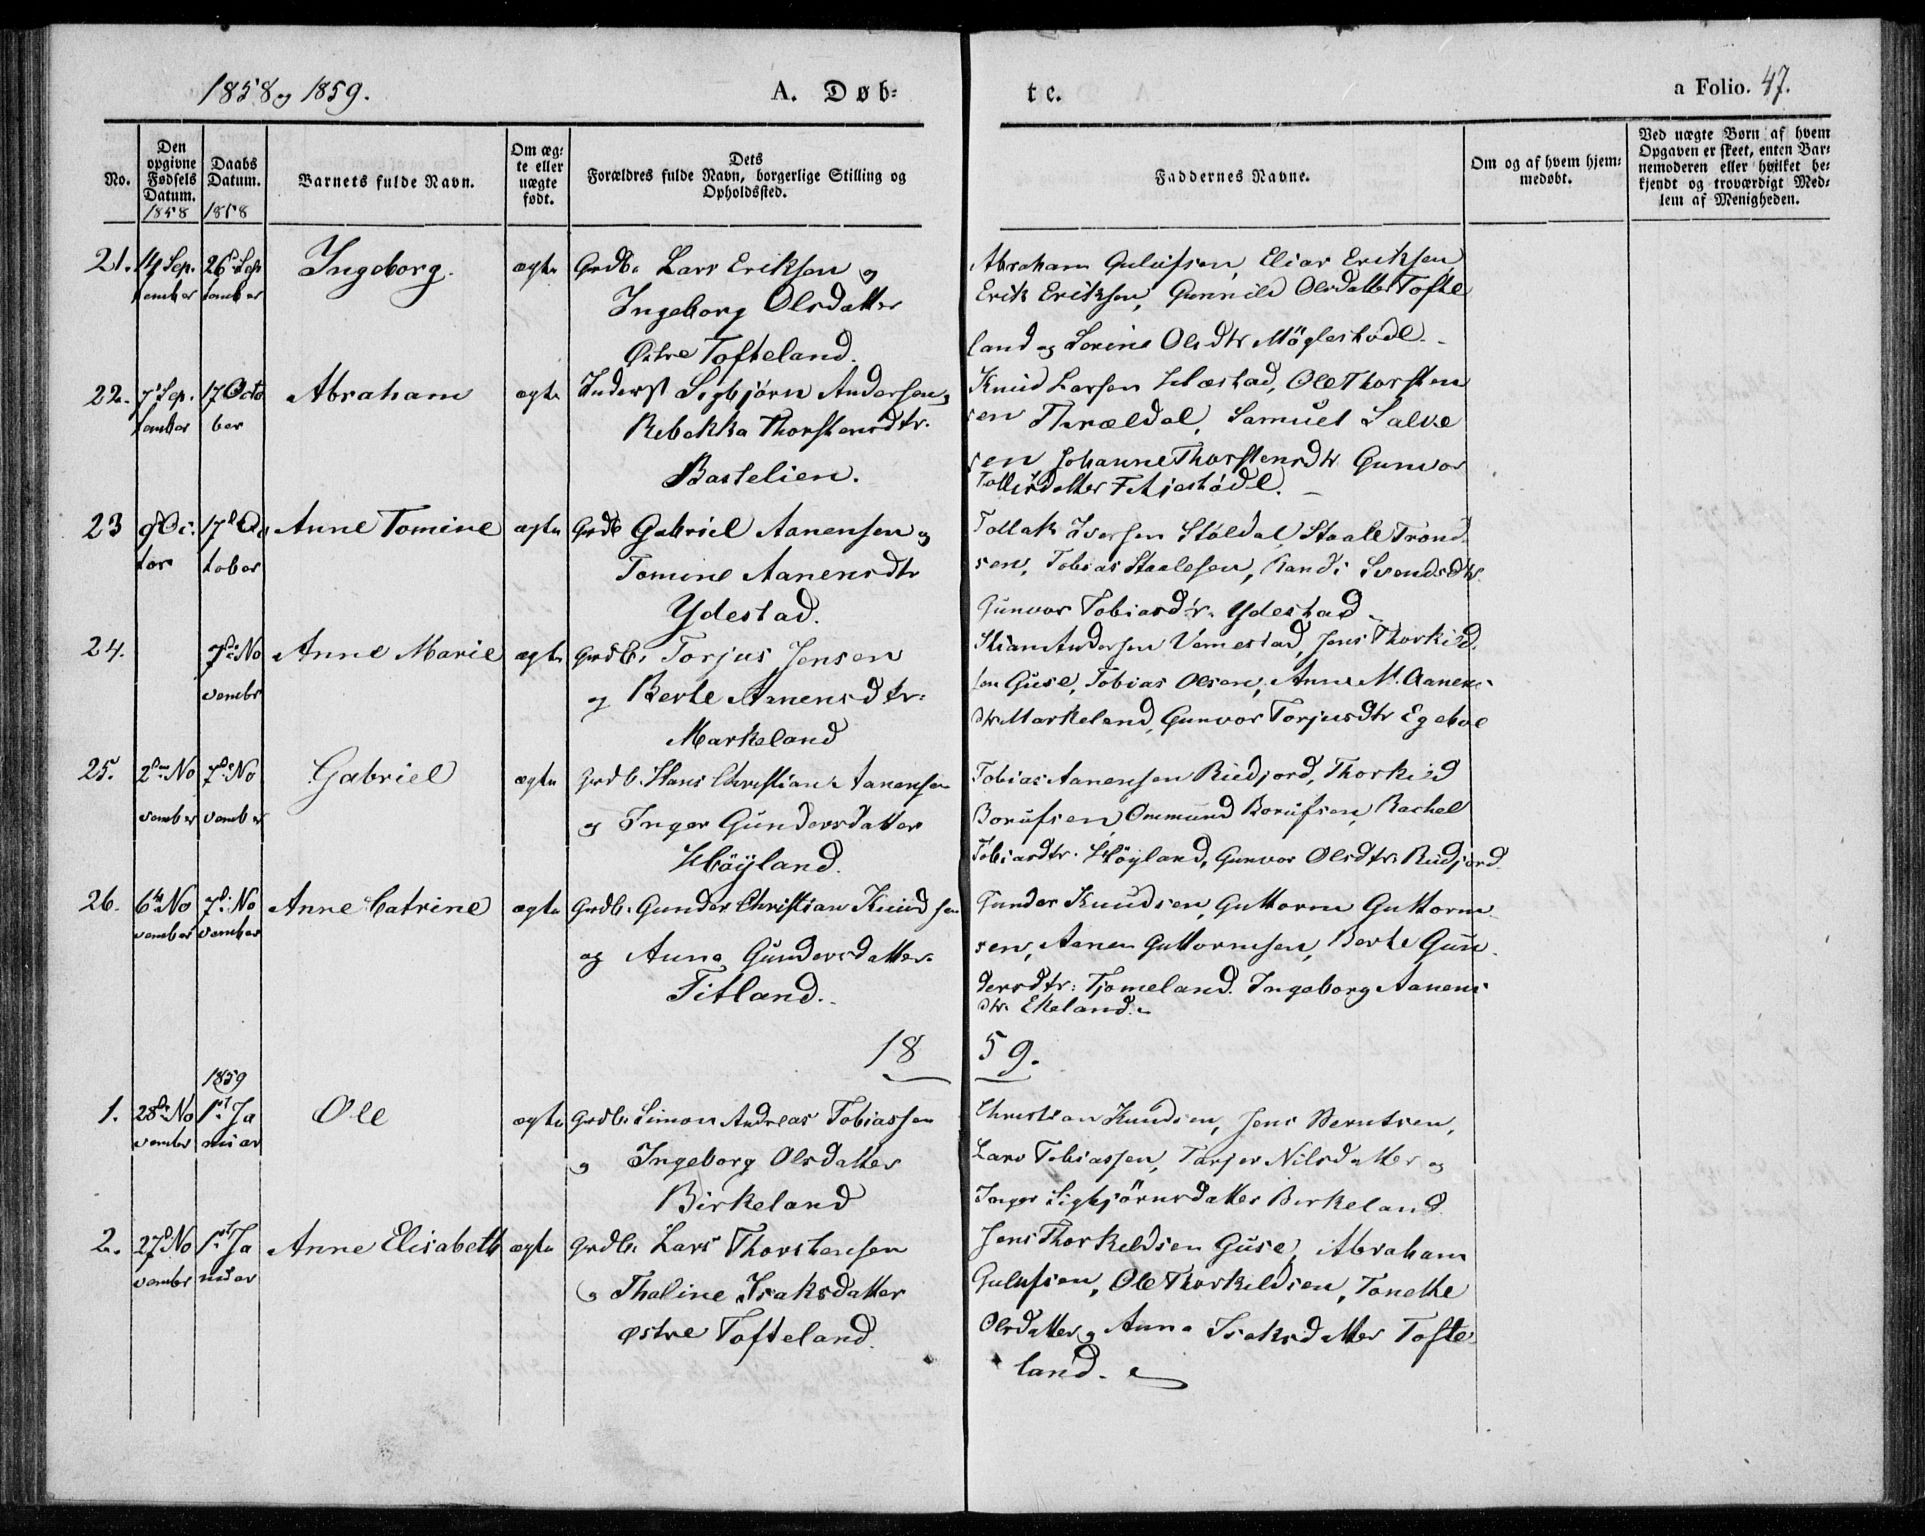 1858 og 1859.
A. Døb-
te.
a Folio. 47.
No.
Den
opgivne
Fødsels
Datum.
1858
Daabs
Datum.
1858
Barnets fulde Navn.
Om æg-
te eller
uægte
født.
Dets
Forældres fulde Navn, borgerlige Stilling og
Opholdssted.
Faddernes Navne.
Om og af hvem hjem-
medøbt.
Ved uægte Børn af hvem
Opgaven er skeet, enten Bar-
nemoderen eller hvilket be-
kjendt og troværdigt Med-
lem af Menigheden.
21.
14 Sep.
tember
26 Sep
tember
Ingeborg.
ægte
Grdb. Lars Eriksen og
Ingeborg Olsdatter
Østre Tofteland.
Abraham Gulufsen, Elias Eriksen,
Erik Eriksen, Gunnild Olsdatter Tofte
land og Lorine Olsdtr Møglestødl.
22.
7 Sep.
tember
17 Octo
ber
Abraham
ægte
Inderst Sigbjørn Andersen og
Rebekka Thorstensdtr.
Bastelien.
Knud Larsen Hæstad, Ole Thorsten
sen Thrældal, Samuel Salve
sen Johanne Thorstensdtr Gunvor
Tollisdatter Fitjestødl.
23
9 Oc:
tor
17 Oc
tober
Anne Tomine
ægte
Grdb Gabriel Aanensen og
Tomine Aanensdtr
Ydestad.
Tollak Iversen Støldal, Staale Trond
sen, Tobias Staalesen, Randi Svendsdtr
Gunvor Tobiasdtr. Ydestad
24.
7de No
vembr
Anne Marie
ægte
Grdb. Torjus Jensen
og Berte Aanensdtr.
Markeland
Stian Andersen Vemestad, Jens Thorkild
sen Guse, Tobias Olsen, Anne M. Aanens
dtr Markeland, Gunvor Torjusdtr Egeboe
25.
2den No
vember
7de No
vember
Gabriel
ægte
Grdb. Hans Christian Aanensen
og Inger Gundersdatter
Høyland.
Tobias Aanensen Riidjord, Thorkild
Borufsen, Ommund Borufsen, Rachel
Tobiasdtr. Høyland, Gunvor Olsdtr. Riidjord.
26.
6te No
vember
7de No
vember
Anne Catrine
ægte
Grdb. Gunder Christian Knudsen
og Anna Gundersdatter
Fitland.
Gunder Knudsen, Guttorm Guttorm
sen, Aanen Guttormsen, Berte Gun
dersdtr: Tjomeland. Ingeborg Aanens
dtr. Ekeland.
18
59.
1859
1.
28de No
vembr
1st Ja
nuar
Ole
ægte
Grdb. Simon Andreas Tobiassen
og Ingeborg Olsdatter
Birkeland
Christian Knudsen, Jens Berntsen,
Lars Tobiassen, Tarjer Nilsdatter og
Inger Sigbjørnsdatter Birkeland
2.
27de No
vembr
1st Ja
nuar
Anne Elisabeth
ægte
Grdb. Lars Thorstensen
og Thaline Isaksdatter
østre Tofteland.
Jens Thorkeldsen Guse, Abraham
Gulufsen, Ole Thorkeldsen, Tonette
Olsdatter og Anna Isaksdatter Tofte
land.